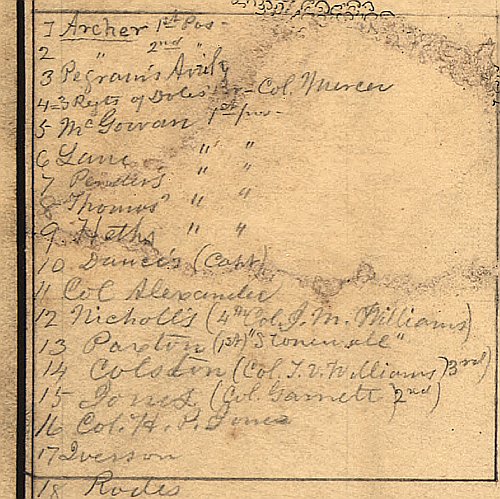 1 Archer 1st Pos-
2 " 2nd "
3 Pegram's Artily
4=3 Regts of Doles Br- Col. Mercer
5 McGowan 1st pos-
6 Lane " "
7 Pender's " "
8 Thomas' " "
9 Heths " "
10 Dance's (Capt)
11 Col Alexander
12 Nicholl's (4th Col. J. M. Williams)
13 Paxton (1st) "Stonewall"
14 Colston (Col. T. V. Williams) 3rd)
15 Jones (Col. Garnett) 2nd)
16 Col. H. P. Jones
17 Iverson
18 Rodes